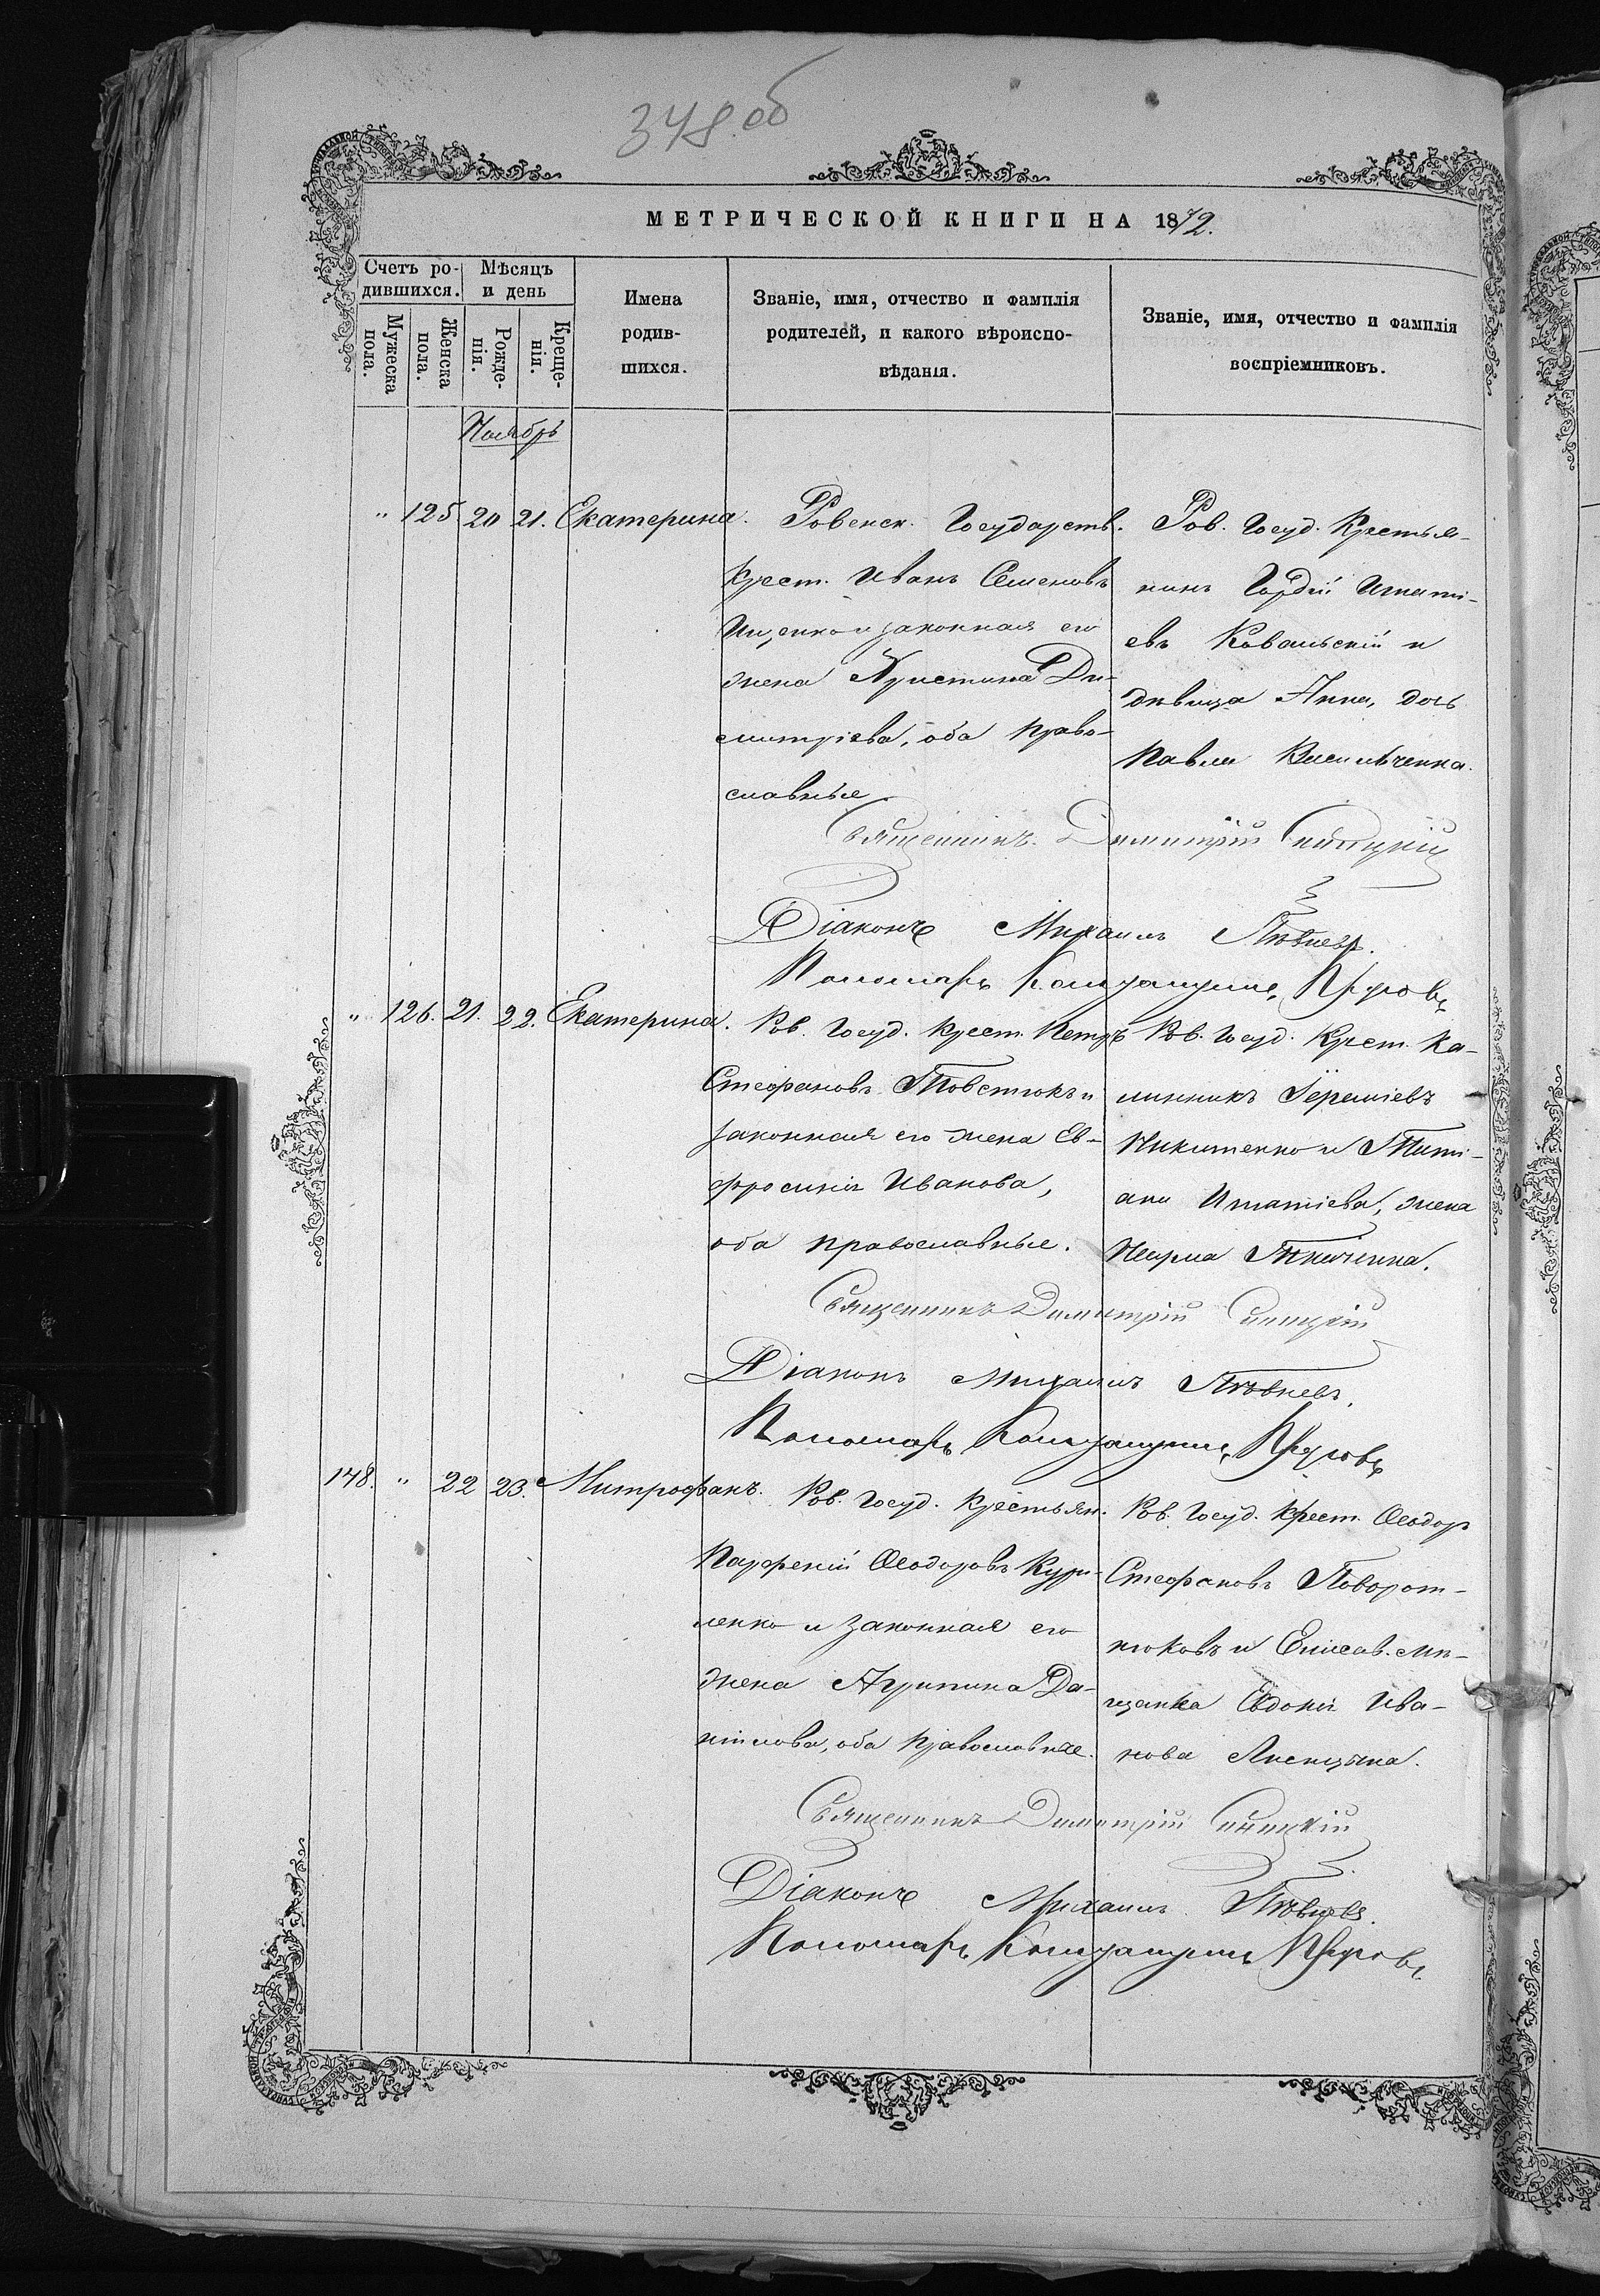 348 об
МЕТРИЧЕСКОЙ КНИГИ НА 1872.
Счетъ ро-
дившихся.
Мѣсяцъ
и день
Мужеска
пола.
Женска
пола.
Рожде-
нія.
Креще-
нія.
Имена
родив-
шихся.
Званіе, имя, отчество и фамилія
родителей, и какого вѣроиспо-
вѣданія.
Званіе, имя, отчество и фамилія
воспріемниковъ.
Ноябрь
" 125 20 21. Екатерина.
Ровенск. Государств.
Крест. Иванъ Семеновъ
Ищенко и законная его
жена Христина Ди-
митріева, оба право-
славные
Ров. Госуд. Крестья-
нинъ Гордій Игнаті-
евъ Ковальскій и
дѣвица Анна, дочь
Павла Васильченка.
Священникъ Димитрій
Діаконъ Михаилъ Пѣвневъ.
Пономарь Константинъ
" 126. 21. 22. Екатерина.
Ров. Госуд. Крест. Петръ
Стефановъ Товстокъ и
законная его жена Ев-
фросинія Иванова,
оба православные.
Ров. Госуд. Крест. Ка-
линникъ Іереміевъ
Никитенко и Тати-
ана Игнатіева, жена
Наума Ткаченка.
Священникъ Димитрій
Діаконъ Михаилъ Пѣвневъ.
Пономарь Константинъ
148. " 22 23. Митрофанъ.
Ров. Госуд. Крестьян.
Парфеній Ѳеодоровъ Кури-
ленко и законная его
жена Агрипина Да-
ніилова, оба православные.
Ров. Госуд. Крест. Ѳеодоръ
Стефановъ Поворот-
нюковъ и Елисав. мѣ-
щанка Евдокія Ива-
нова
Священникъ Димитрій
Діаконъ Михаилъ Пѣвневъ.
Пономарь Константинъ